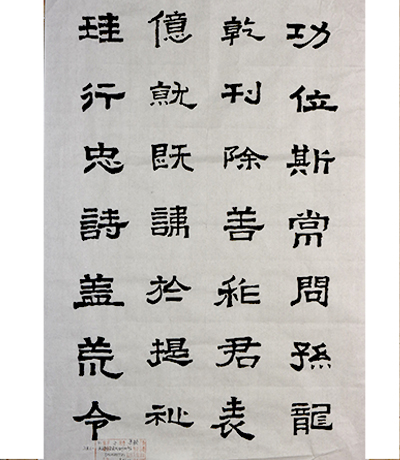 功位斯常問孫龍
乾刊除善和君表
億就既於提祉
珪行忠詩蓋荒令